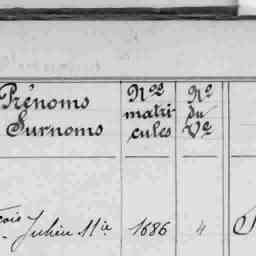 Prénoms
Surnoms
Nos
matri
cules
No
du
Vo
çois Julien Mie
1686
4